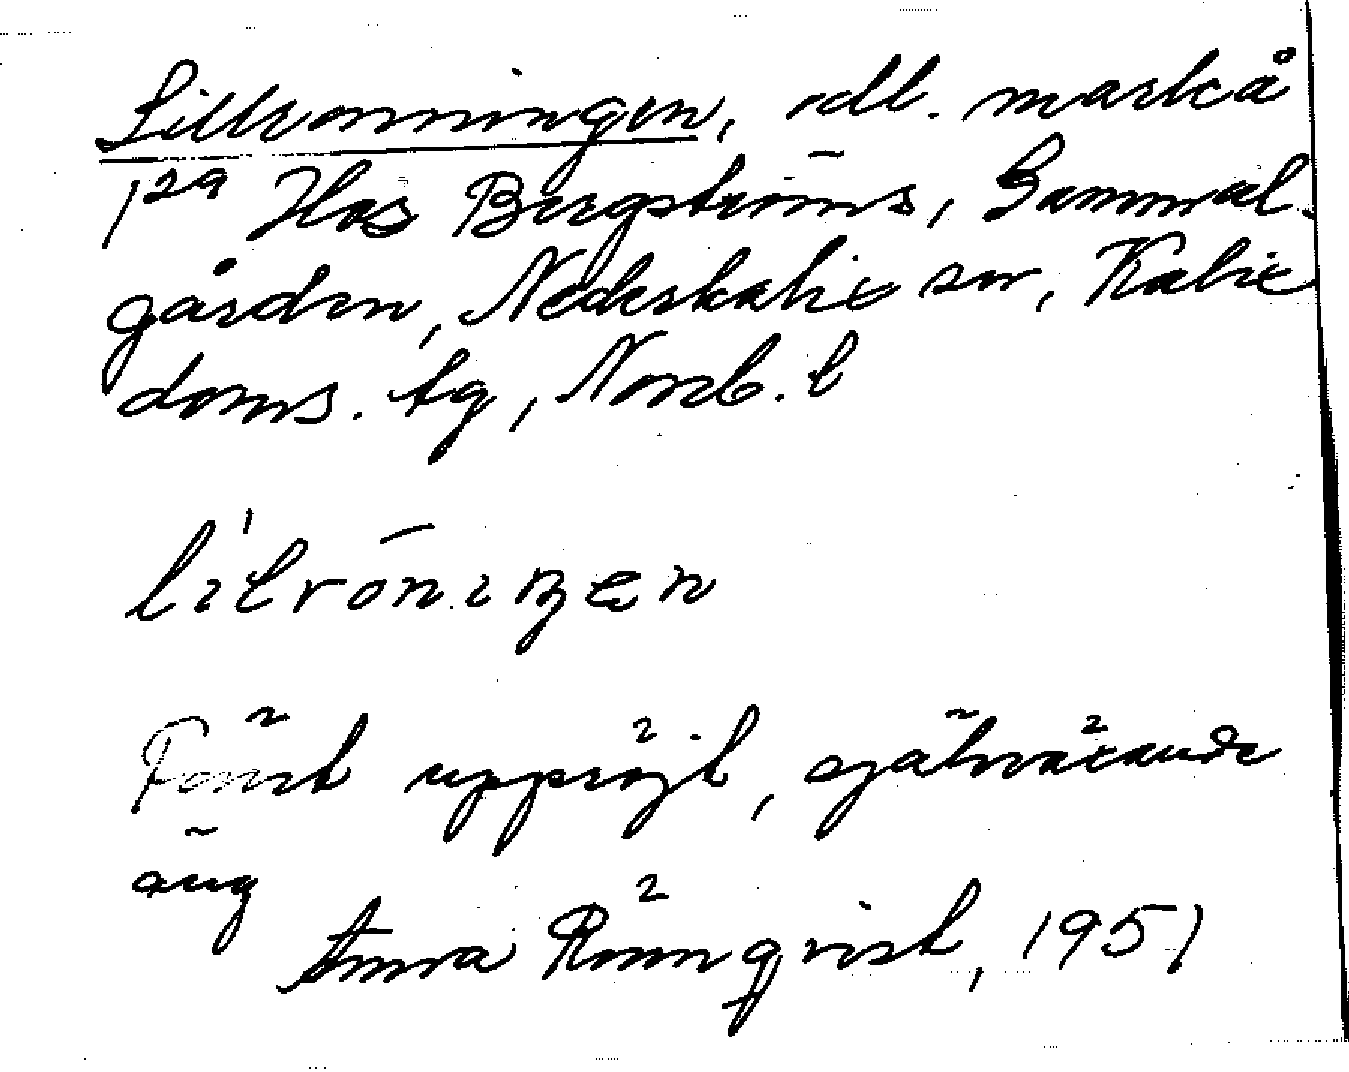 Lillrönningen, odl. mark å
1²⁹ Hos Bergströms, Gammel-
gården, Nederkalix sn, Kalix
doms. tg, Norrb. l
lilröningen
Förut uppröjt, självväxande
äng
Anna Rönnqvist, 1951